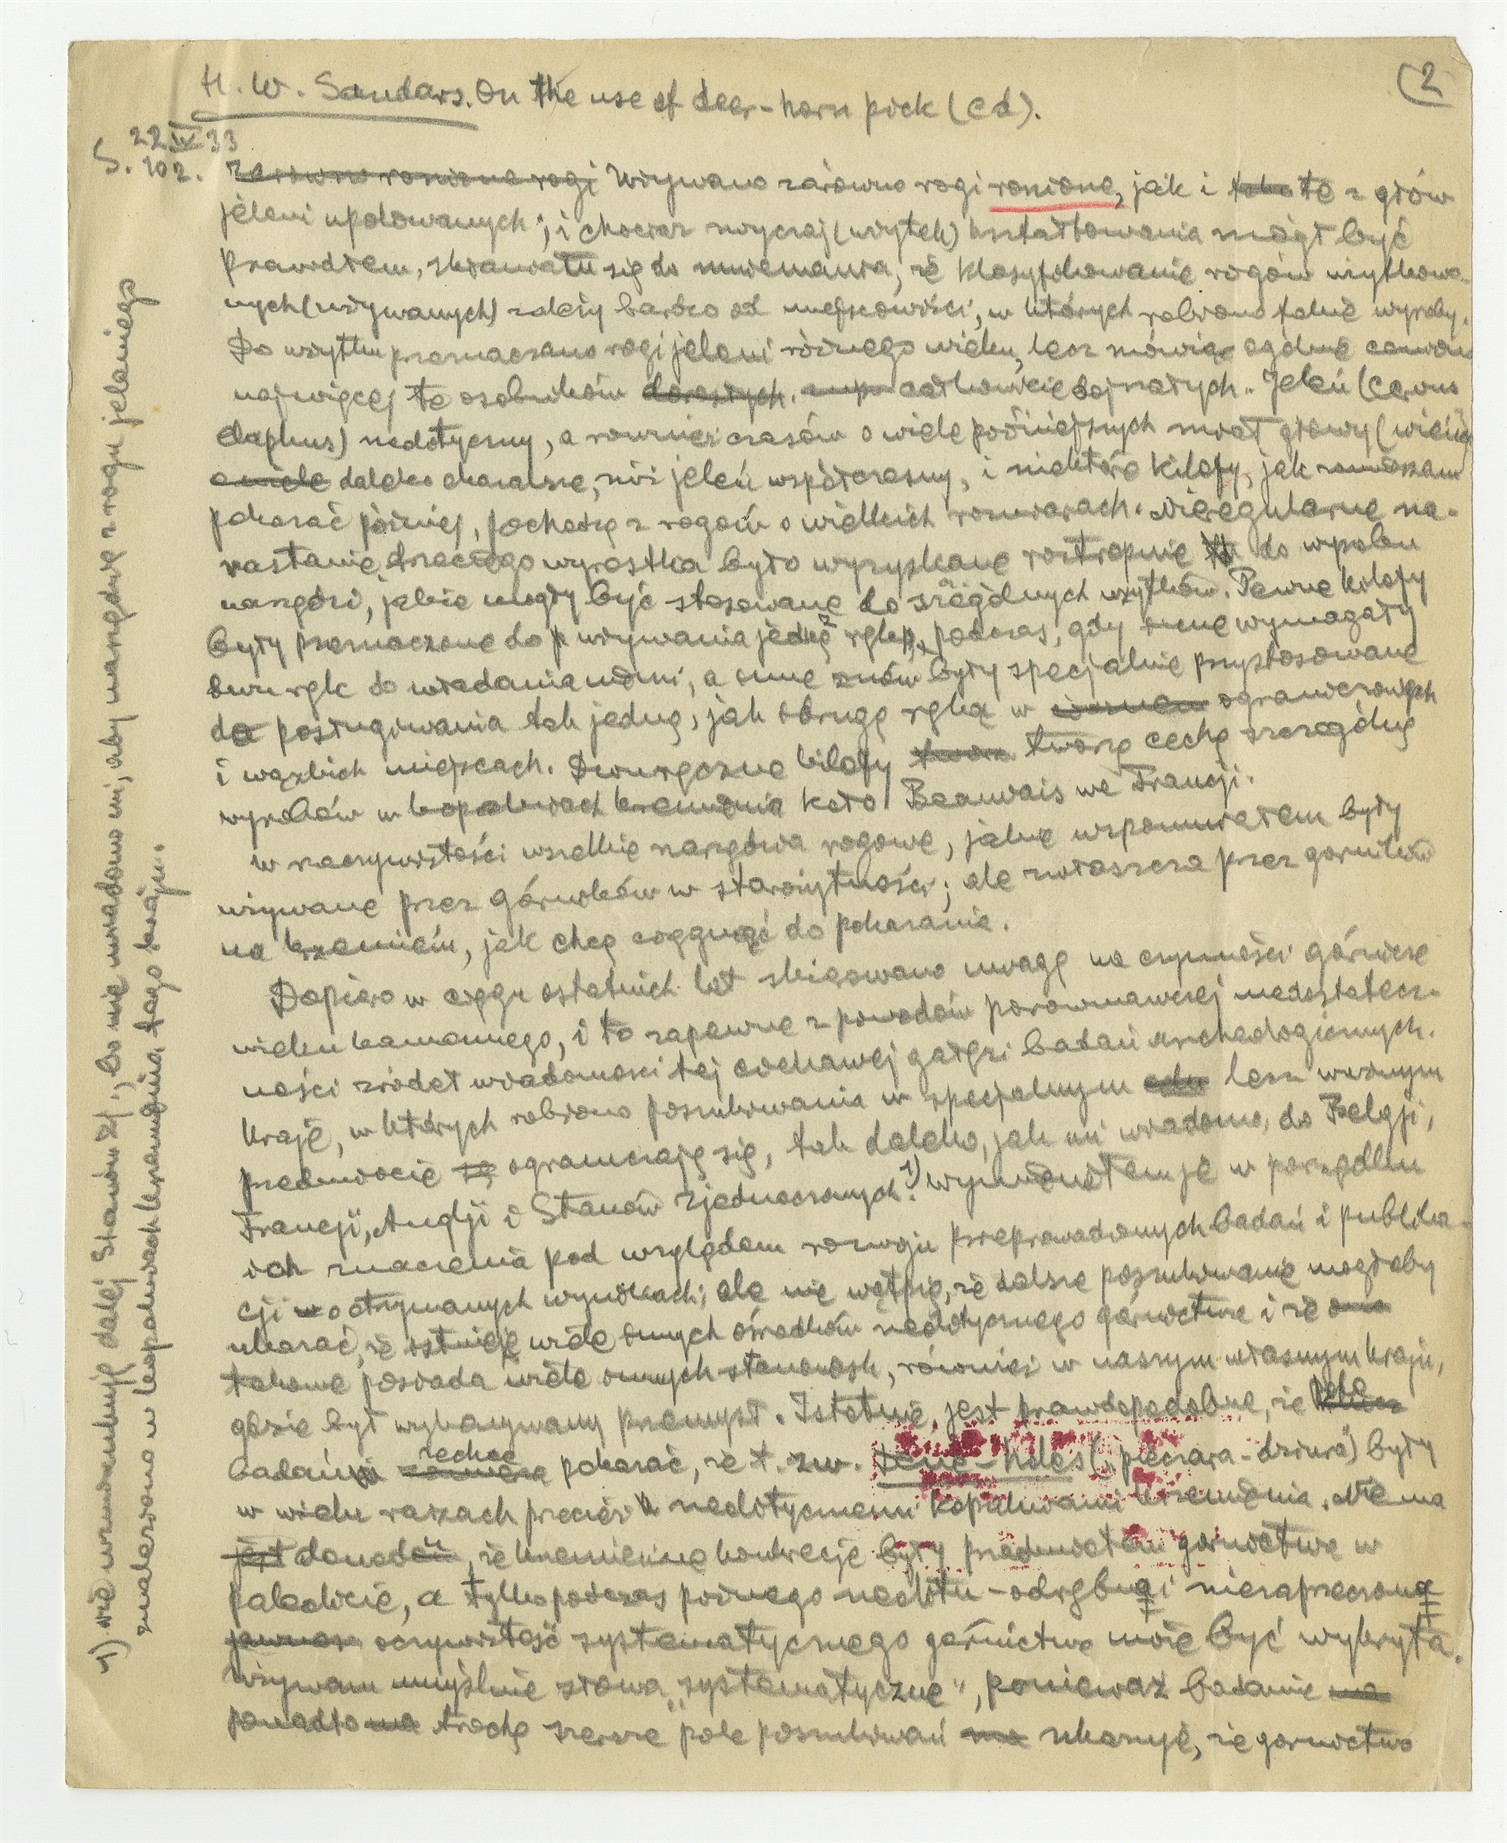 (2
H. W. Sandars. On the use of deer-horn pick (cd).
22 IV 33
S. 102. Zarówno ronione rogi Używano zarówno rogi ronione, jak i te z głów
jeleni upolowanych; i chociaż zwyczaj (użytek) kształtowania mógł być
prawidłem, skłaniałem się do mniemania, że klasyfikowanie rogów użytkowa-
nych (używanych) zależy bardzo od miejscowości, w których robiono takie wyroby.
Do użytku przeznaczano rogi jeleni różnego wieku, lecz mówiąc ogólnie
najwięcej te osobników dorosłych, całkowicie dojrzałych. Jeleń (Cervus
elaphus) neolityczny, a również czasów o wiele późniejszych miał głowy (wieńce)
o wiele daleko okazalsze, niż jeleń współczesny, i niektóre kilofy, jak zamierzam
pokazać później, pochodzą z rogów o wielkich rozmiarach. Nieregularne na-
rastanie trzeciego wyrostka było wyzyskane roztropnie do wyrobu
narzędzi, jakie mogły być stosowane do szczególnych użytków. Pewne kilofy
były przeznaczone do używania jedną ręką, podczas, gdy inne wymagały
dwu rąk do władania niemi, a inne znów były specjalnie przystosowane
do posługiwania tak jedną, jak drugą ręką w ograniczonych
i wązkich miejscach. Dwuręczne kilofy tworzą cechę szczególną
wyrobów w kopalniach krzemienia koło Beauvais we Francji.
W rzeczywistości wszelkie narzędzia rogowe, jakie wspomniałem były
używane przez górników w starożytności; ale zwłaszcza przez górników
na krzemień, jak chcę osiągnąć do pokazania.
Dopiero w ciągu ostatnich lat skierowano uwagę na czynności górnicze
wieku kamiennego, i to zapewne z powodów porównawczej niedostatecz-
ności źródeł wiadomości tej ciekawej gałęzi badań archeologicznych.
Kraje, w których robiono poszukiwania w specjalnym lecz ważnym
przedmiocie są ograniczają się, tak daleko, jak mi wiadomo, do Belgji,
Francji, Anglji i Stanów Zjednoczonych.¹) Wymieniłem je w porządku
ich znaczenia pod względem rozwoju przeprowadzonych badań i publika-
cji o otrzymanych wynikach; ale nie wątpię, że dalsze poszukiwanie mogłoby
ukazać, że istnieje wiele innych ośrodków neolitycznego górnictwa i że one
takowe posiada wiele innych stanowisk, również w naszym własnym kraju,
gdzie był wykonywany przemysł. Istotnie, jest prawdopodobne, że
badania zechcę pokazać, że t. zw. Dene-Holes („pieczara-dziura") były
w wielu razach przecież neolitycznemi kopalniami krzemienia. Nie ma
jest dowodów, że krzemienne konkrecje były przedmiotem górnictwa w
paleolicie, a tylko podczas późnego neolitu – odrębną i niezaprzeczoną
jawność oczywistość systematycznego górnictwa może być wykryta.
Używam umyślnie słowa „systematyczne", ponieważ badanie ma
ponadto trochę szersze pole poszukiwań ma ukazuje, że górnictwo
1) Nie wzmiankuję dalej Stanów Zj., bo nie wiadomo mi, aby narzędzie z rogu jeleniego
znaleziono w kopalniach krzemienia tego kraju.